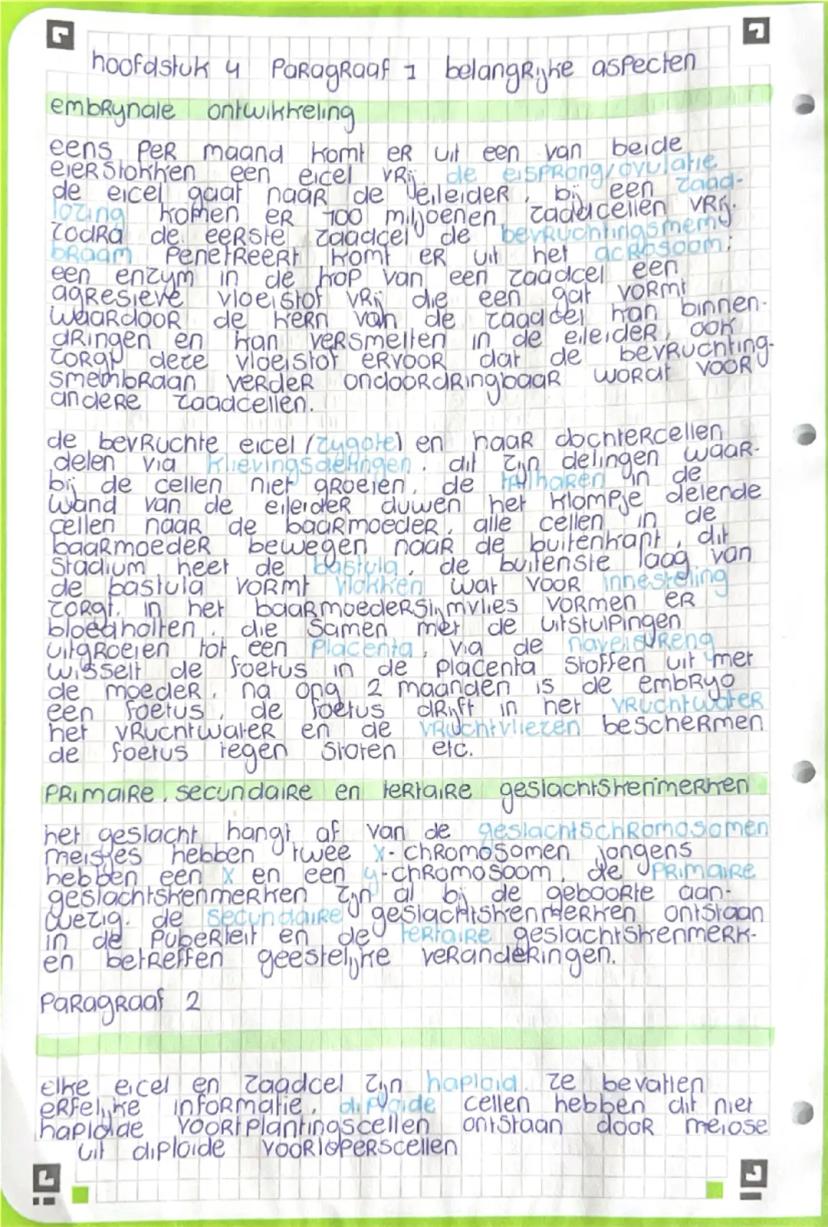 hoofdstuk 4 Paragraaf 1 belangrijke aspecten
embrynale ontwikkeling
eens per maand komt er uit een van beide
eierstokken een eicel vrij, de eisprong/ovulatie
de eicel gaat naar de eileider, bij een zaad-
lozing komen er 100 miljoenen zaadcellen vrij.
zodra de eerste zaadcel de bevruchtingsmem-
braam penetreert komt er uit het acrosoom;
een enzym in de kop van een zaadcel een
agresieve vloeistof vrij die een gat vormt
waardoor de kern van de zaadcel kan binnen-
dringen en kan versmelten in de eileider, ook
zorgt deze vloeistof ervoor dat de bevruchting-
smembraan verder ondoordringbaar wordt voor
andere zaadcellen.
de bevruchte eicel (zygote) en haar dochtercellen
delen via klievingsdelingen. dit zijn delingen waar-
bij de cellen niet groeien. de trilharen in de
wand van de eileider duwen het klompje delende
cellen naar de baarmoeder. alle cellen in de
baarmoeder bewegen naar de buitenkant, dit
stadium heet de bastula. de buitenste laag van
de bastula vormt vlokken wat voor innesteling
zorgt. in het baarmoederslijmvlies vormen er
bloedholten. die samen met de uitstulpingen
uitgroeien tot een placenta, via de navelstreng
wisselt de foetus in de placenta stoffen uit met
de moeder. na ong 2 maanden is de embryo
een foetus, de foetus drijft in het vruchtwater
het vruchtwater en de vruchtvliezen beschermen
de foetus tegen stoten etc.
Primaire, secundaire en tertaire geslachtskenmerken
het geslacht hangt af van de geslachtschromosomen
meisjes hebben twee x-chromosomen jongens
hebben een x en een y-chromosoom. de primaire
geslachtskenmerken zijn al bij de geboorte aan-
wezig. de secundaire geslachtskenmerken ontstaan
in de puberteit en de tertaire geslachtskenmerk-
en betreffen geestelijke veranderingen.
Paragraaf 2
elke eicel en zaadcel zijn haploid. ze bevatten
erfelijke informatie. diploide cellen hebben dit niet
haploide voortplantingscellen ontstaan door meiose
uit diploide voorloperscellen